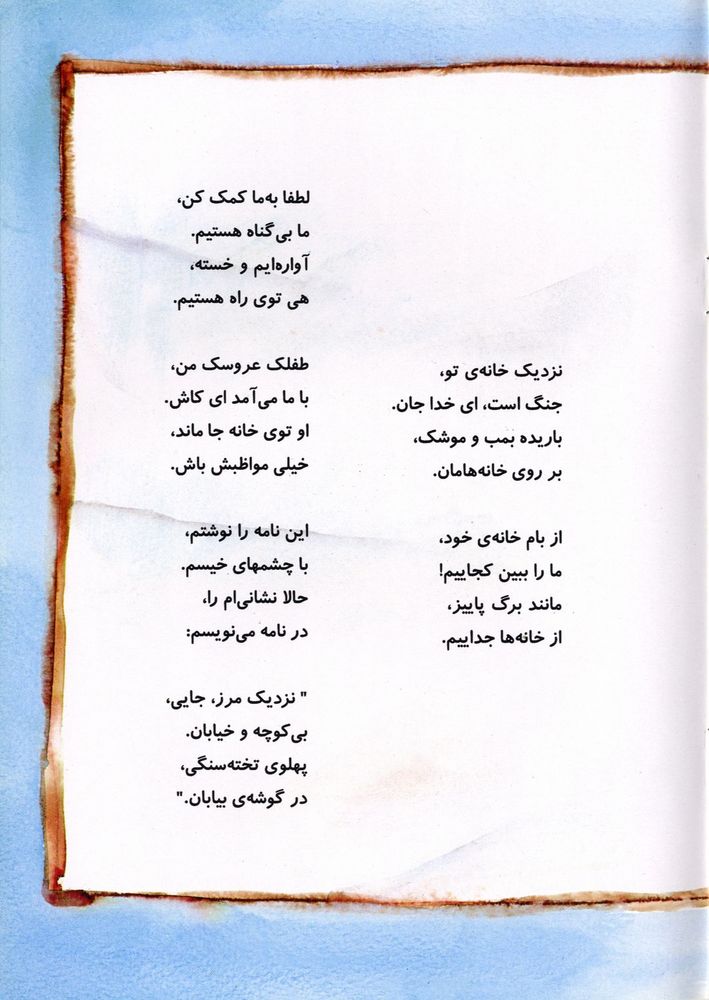 نزدیک خانه‌ی تو،
جنگ است، ای خدا جان.
باریده بمب و موشک،
بر روی خانه‌هامان.
از بام خانه‌ی خود،
ما را ببین کجاییم!
مانند برگ پاییز،
از خانه‌ها جداییم.
لطفا به‌ما کمک کن،
ما بی‌گناه هستیم.
آواره‌ایم و خسته،
هی توی راه هستیم.
طفلک عروسک من،
با ما می‌آمد ای کاش.
او توی خانه جا ماند،
خیلی مواظبش باش.
این نامه را نوشتم،
با چشمهای خیسم.
حالا نشانی‌ام را،
در نامه می‌نویسم:
" نزدیک مرز، جایی،
بی‌کوچه و خیابان.
پهلوی تخته‌سنگی،
در گوشه‌ی بیابان."